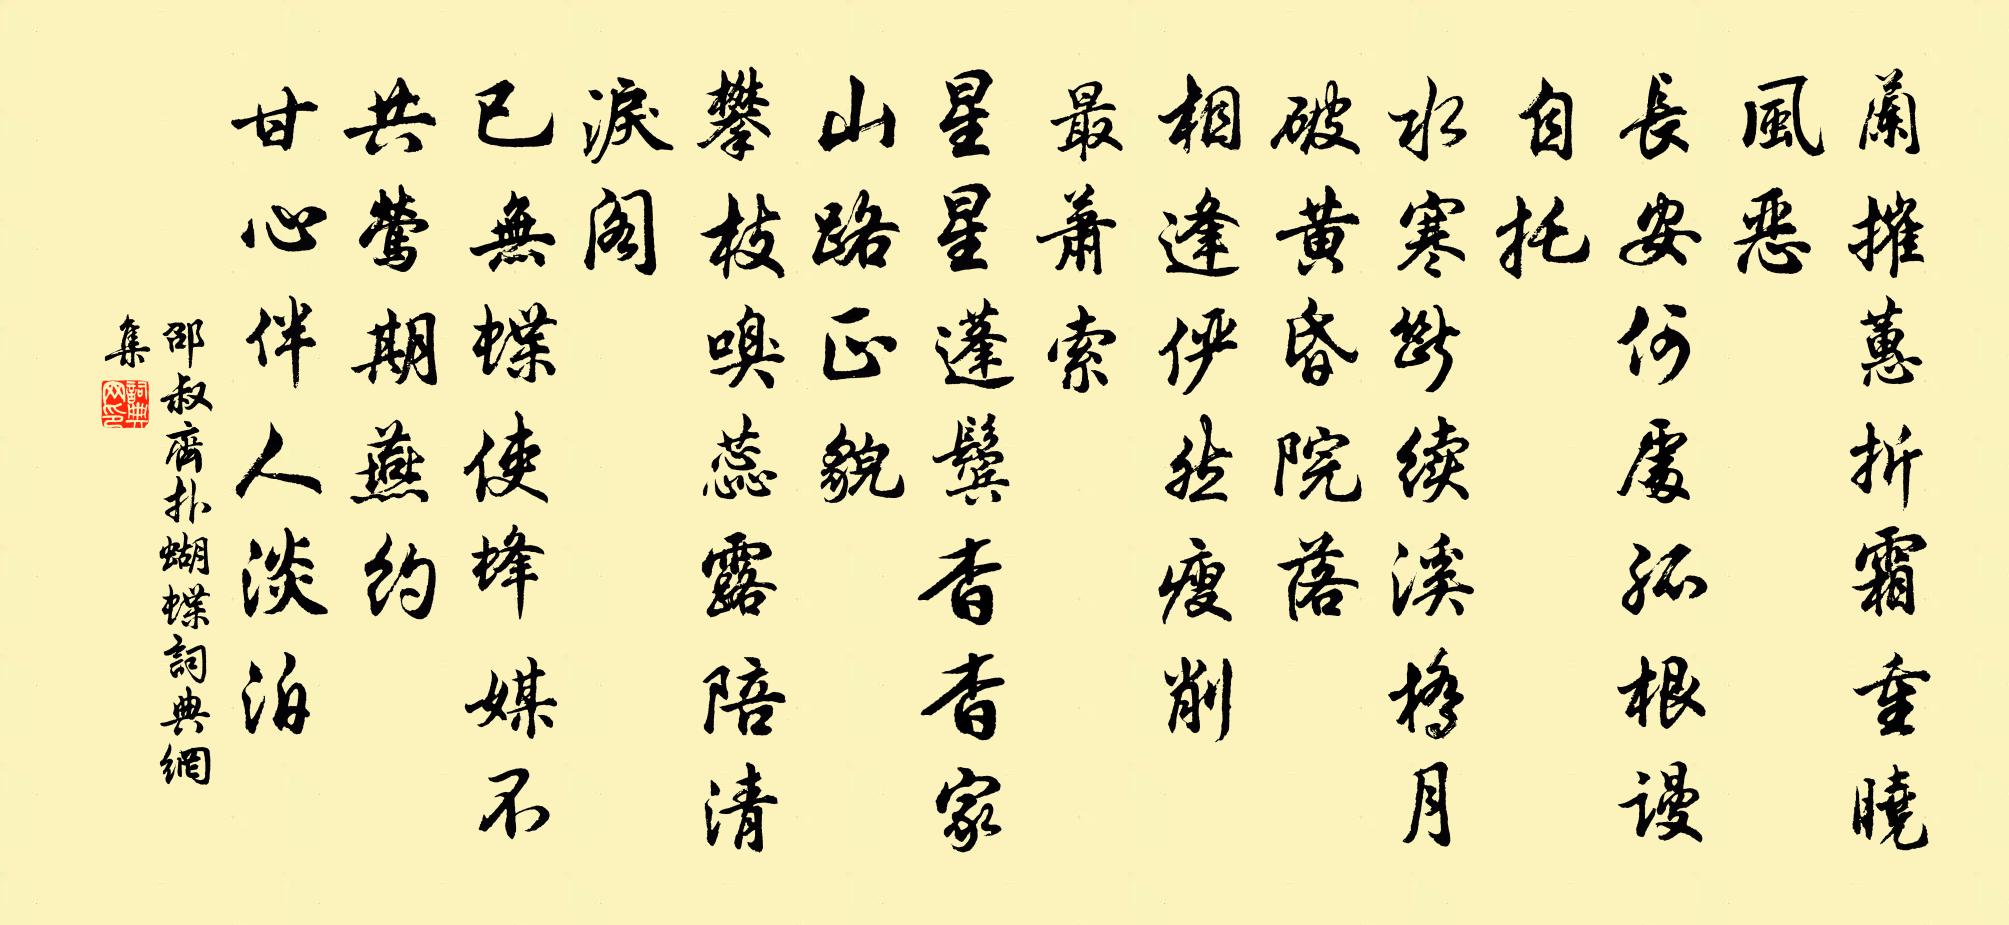 蘭摧蕙折霜重曉
風惡
長安何處孤根謾
自托
水寒斷续溪橋月
破黄昏院落
相逢俨然瘦削
最蕭索
星星蓬鬓杳杳家
山路正貌
攀枝嗅蕊露陪清
淚阁
已無蝶使蜂媒不
共鶯期燕约
甘心伴人淡泊
邵叔齊扑蝴蝶詞典網
集
詞典网印